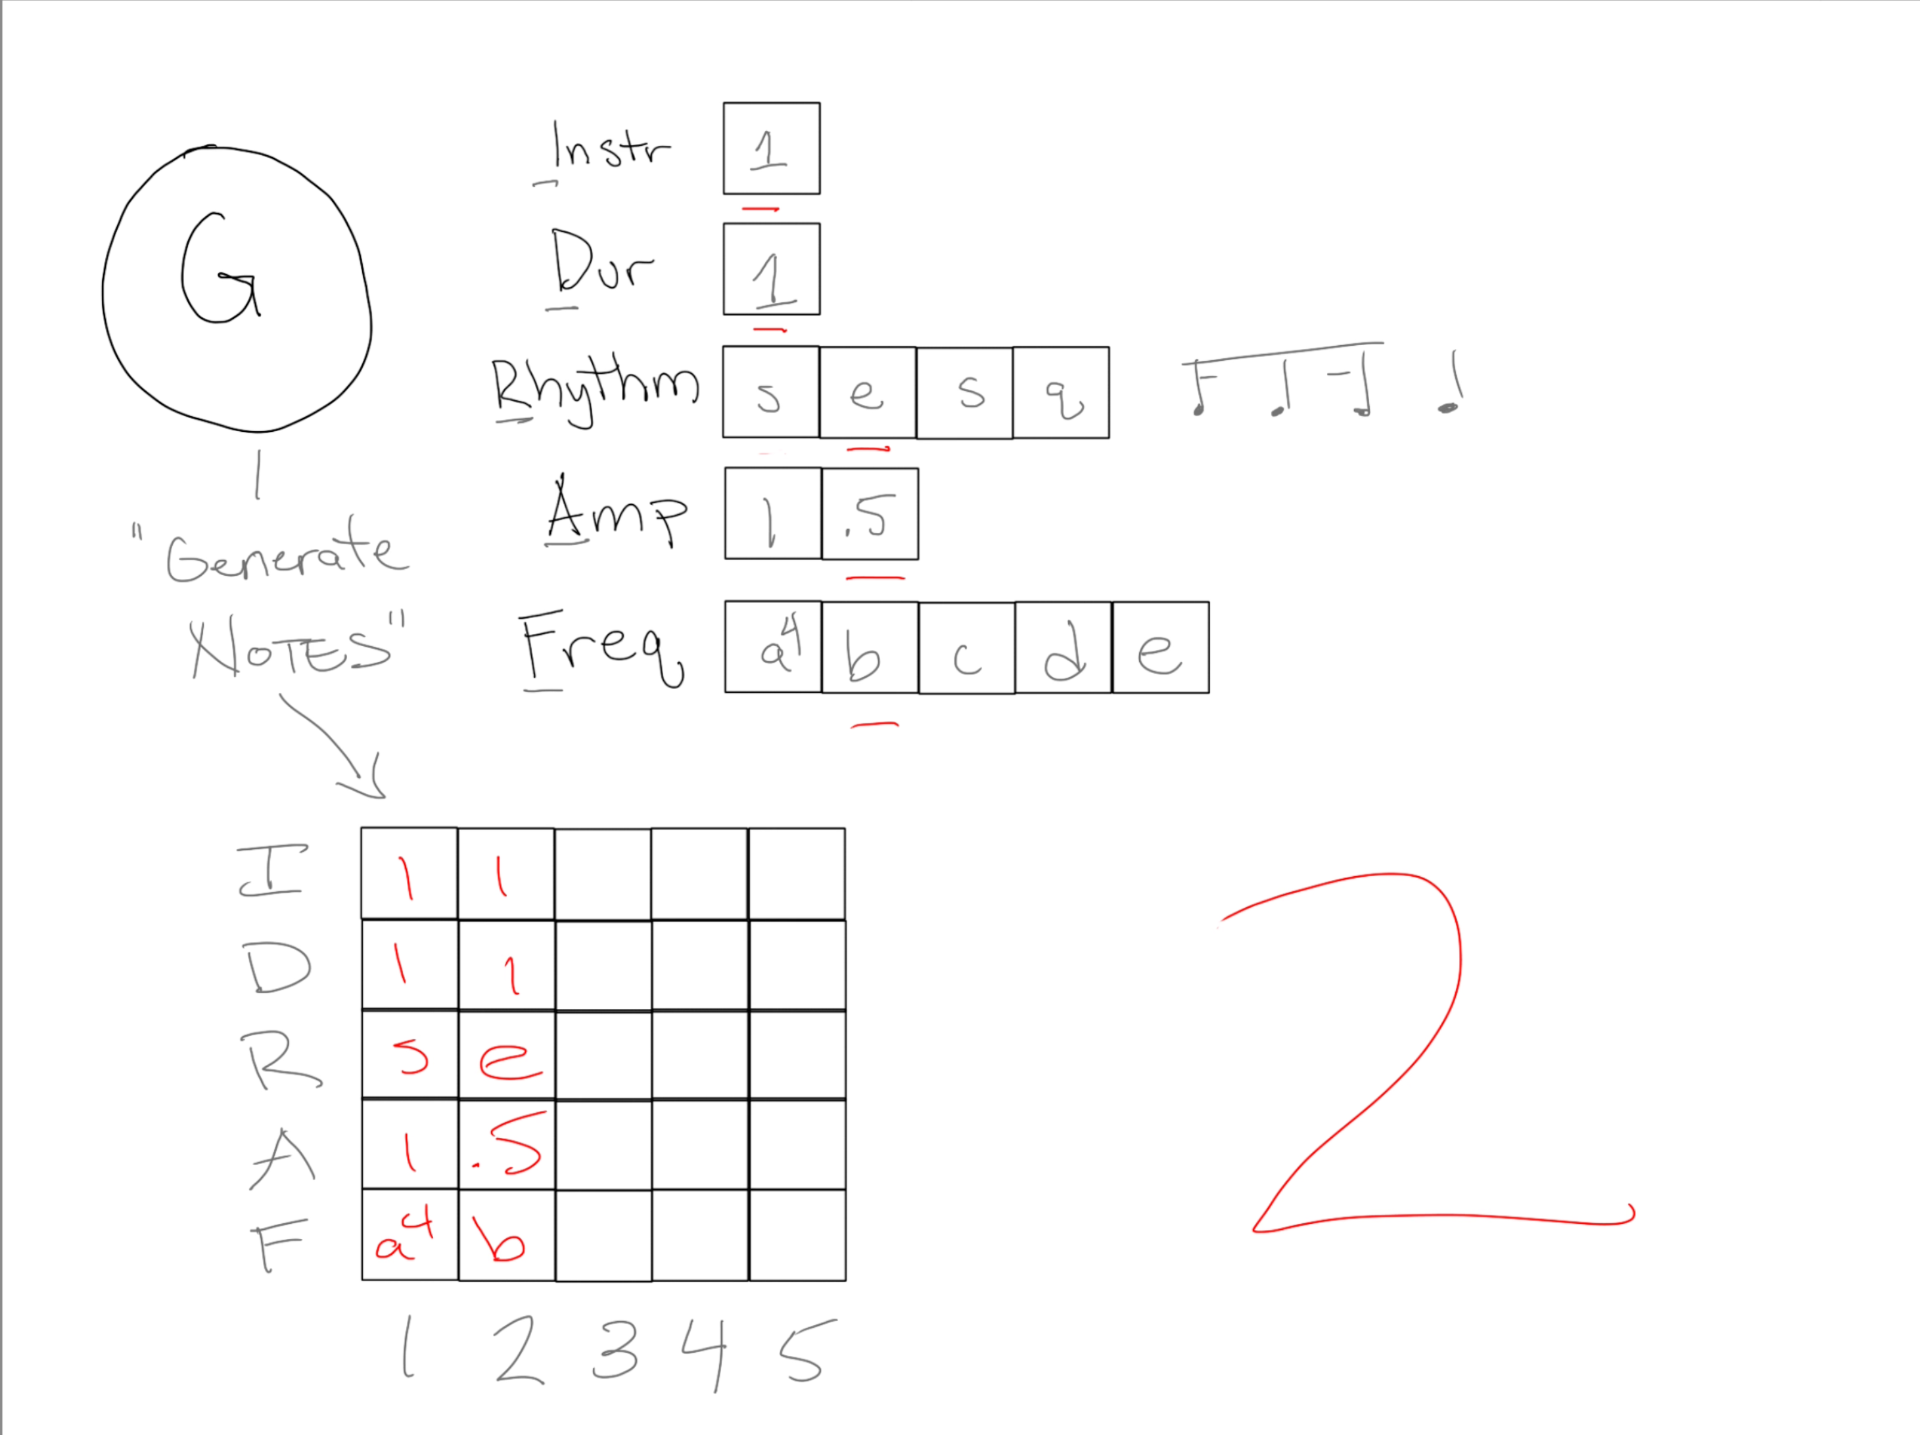 G
"Generate
NOTES"
Instr 1
Dur 1
Rhythm s e s q
Amp 1 .5
Freq a4 b c d e
I 1 1
D 1 1
R s e
A 1 .5
F a4 b
1 2 3 4 5
2